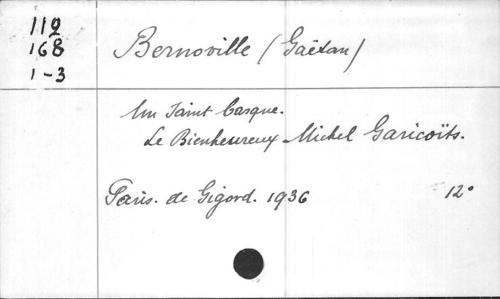 112
168
1-3
Bernoville (Gaëtan)
Un Saint basque.
Le Bienheureux Michel Garicoïts.
Paris. de Gigord. 1936 12°